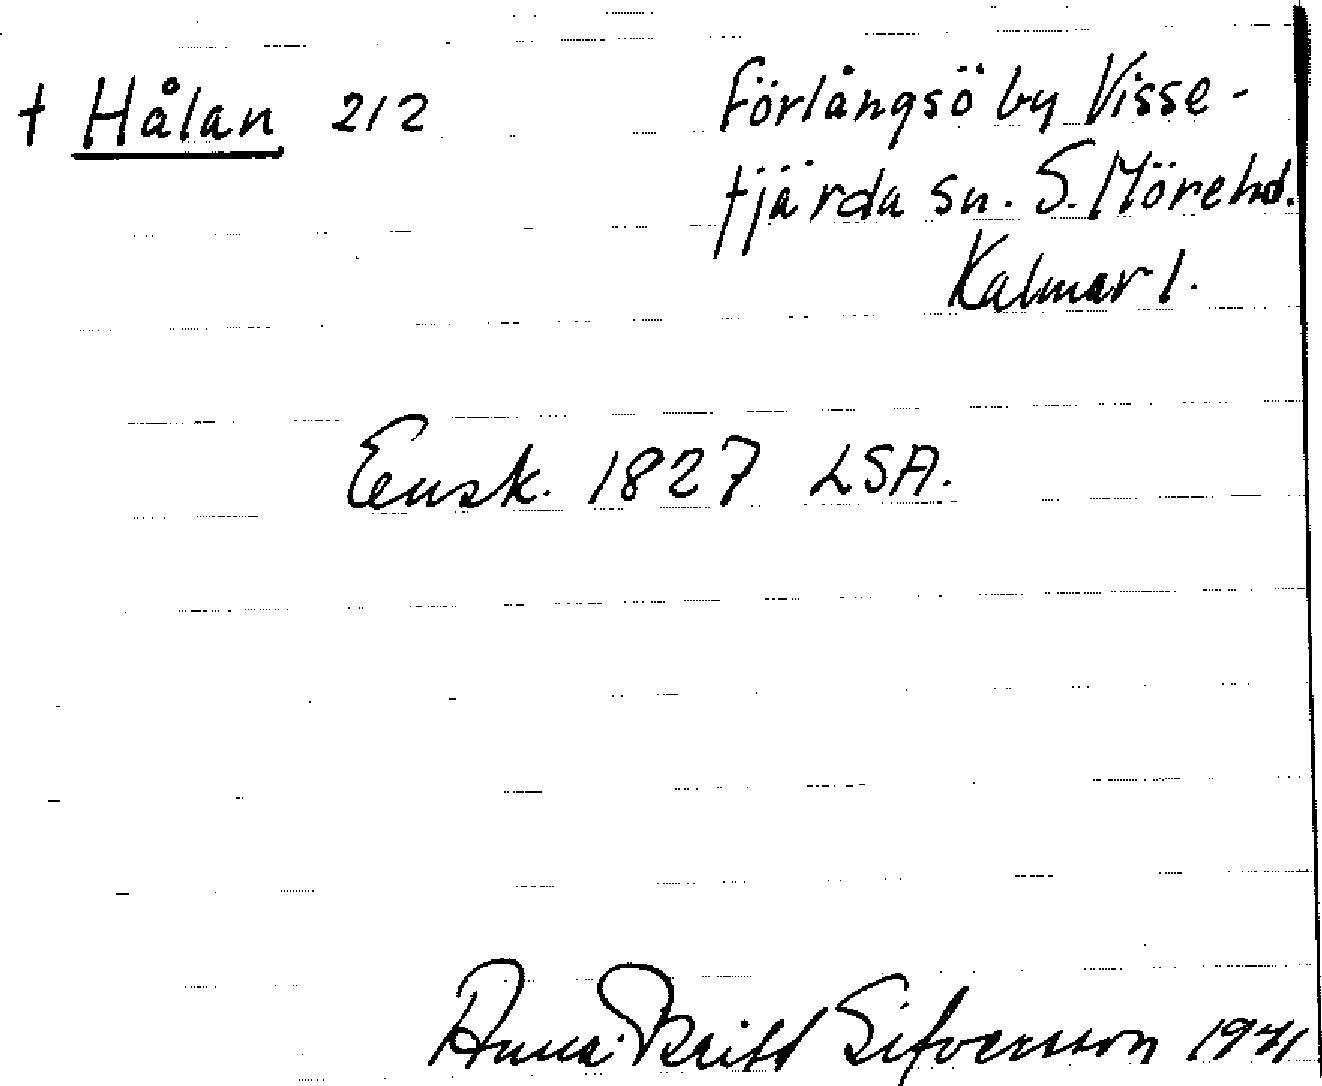 † Hålan 212
Förlångsö by Visse-
fjärda sn. S. Möre hd.
Kalmar l.
Ensk. 1827 LSA.
Anna-Britt Sifversson 1941